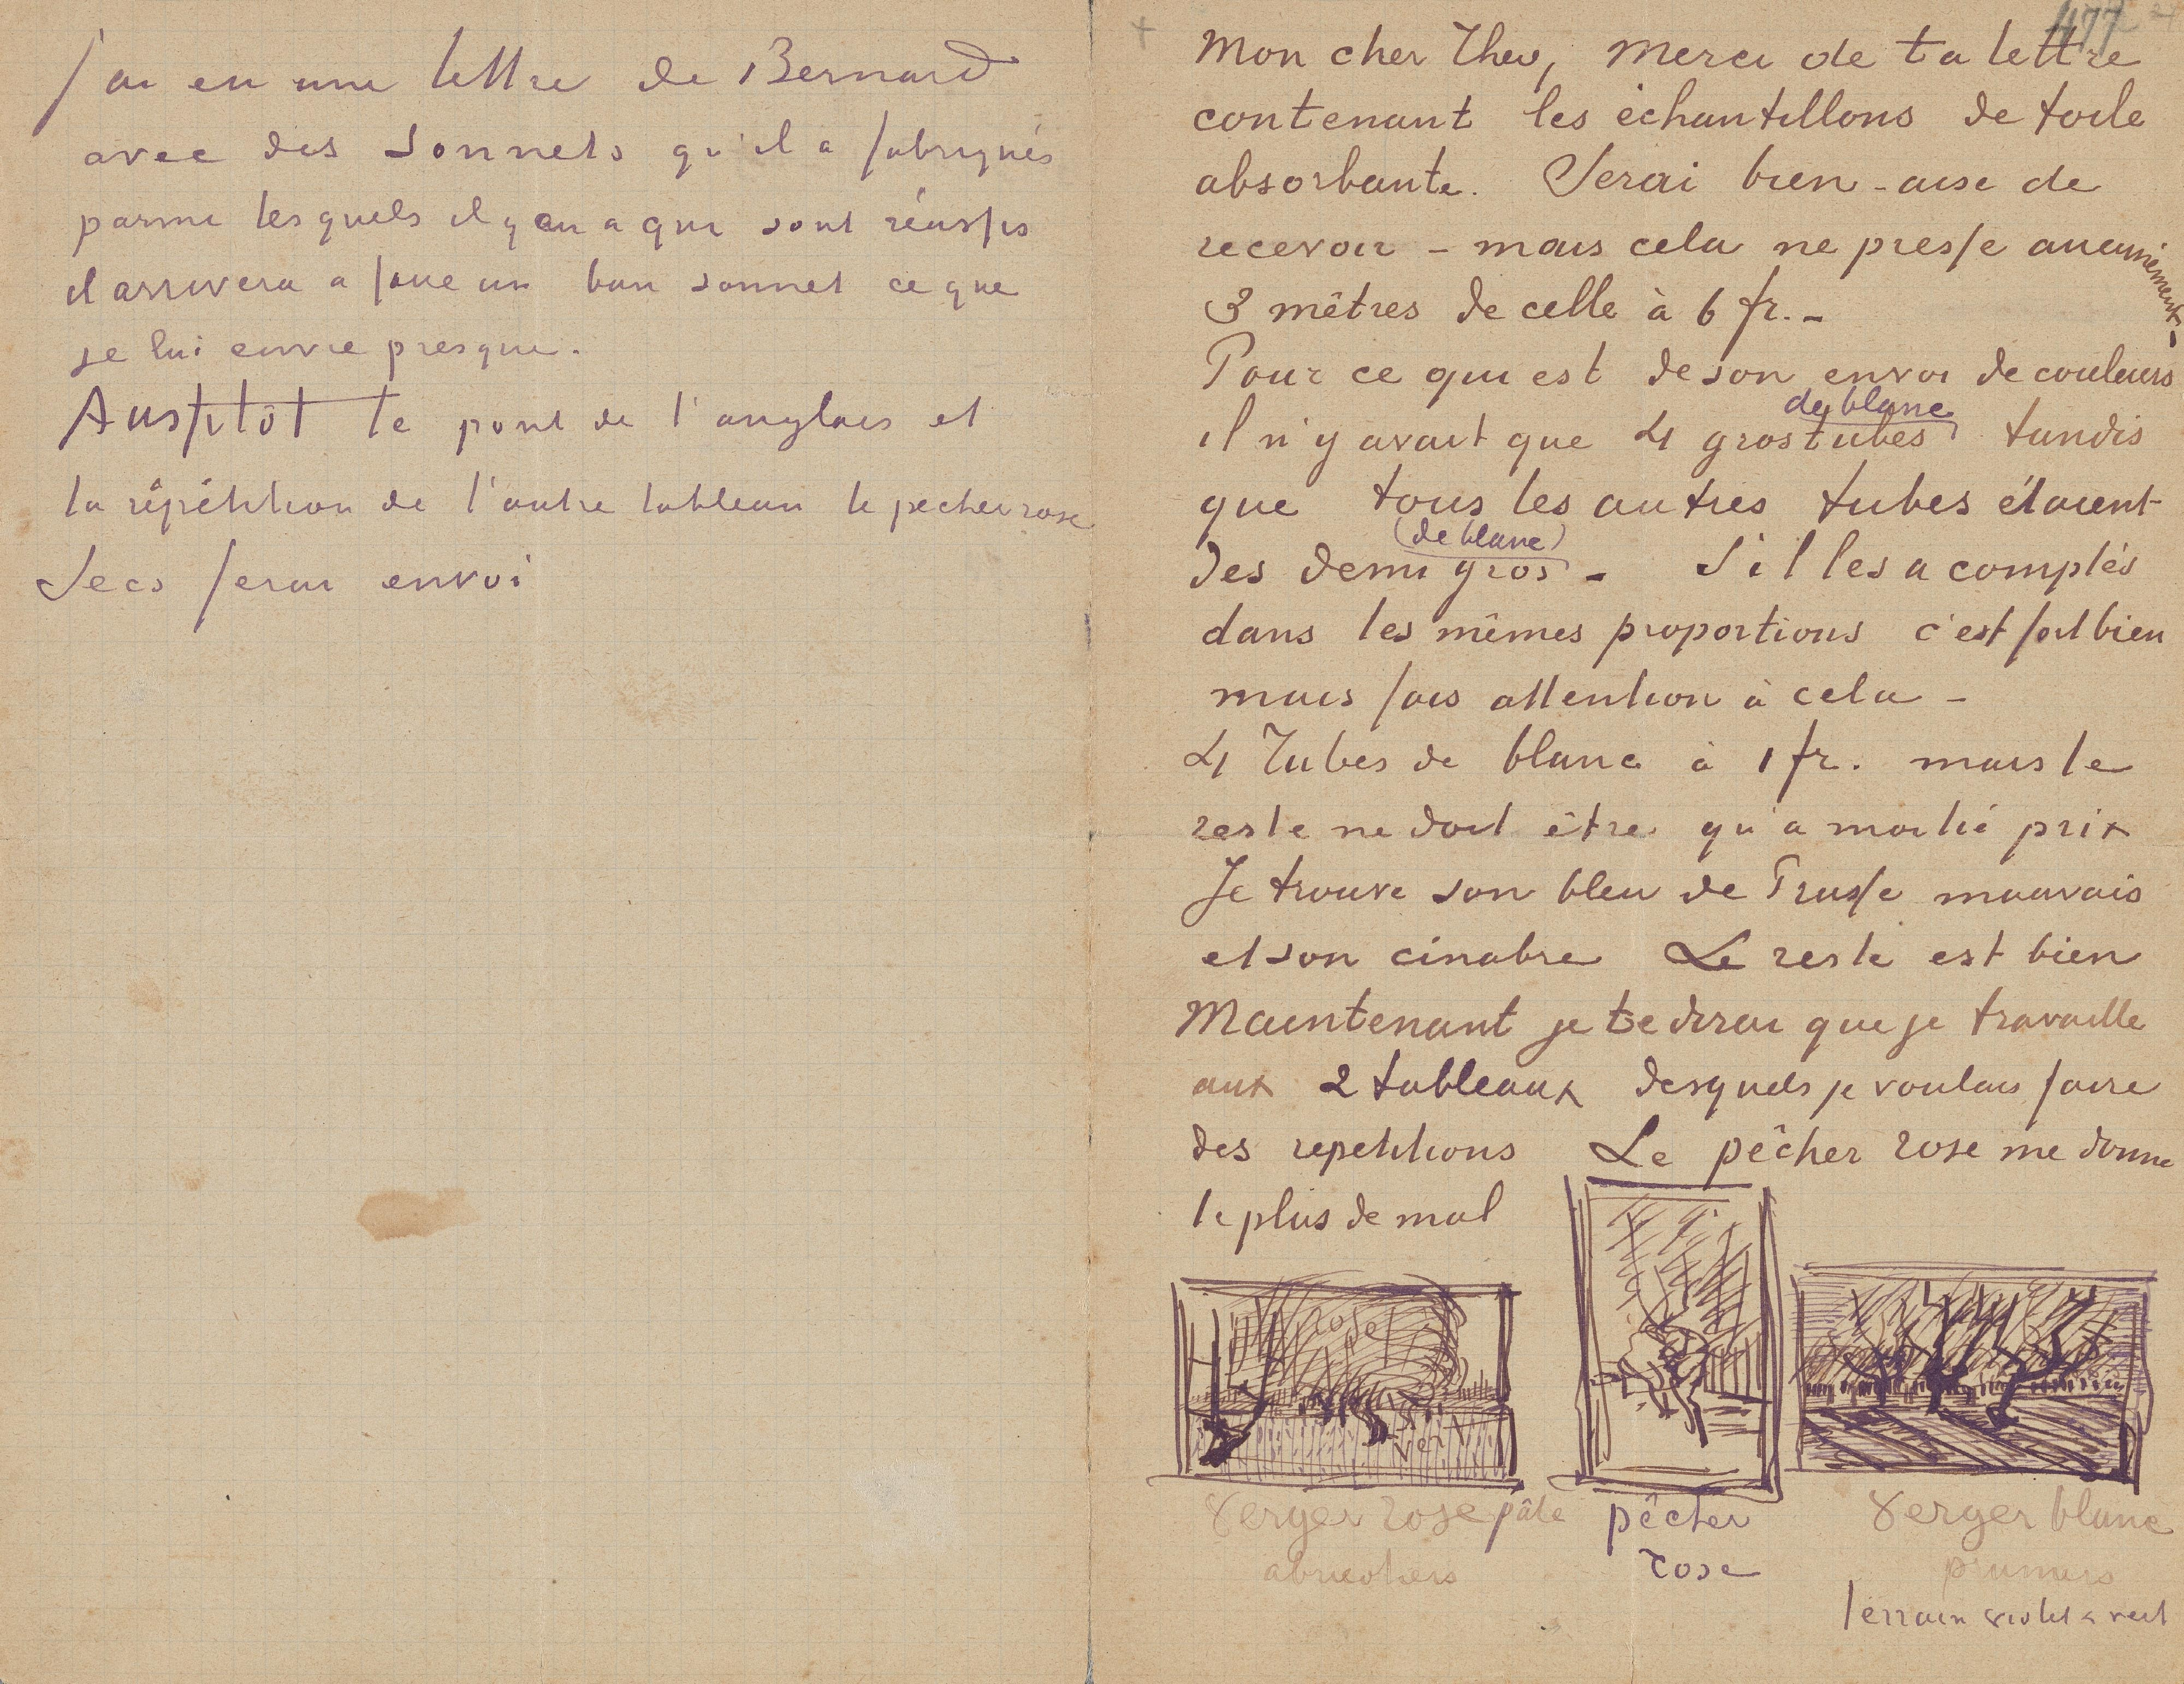 J'ai eu une lettre de Bernard
avec des sonnets qu'il a fabriqués
parmi lesquels il y en a qui sont réussis
il arrivera a faire un bon sonnet ce que
je lui envie presque.
Aussitôt le pont de l'anglais et
la répétition de l'autre tableau le pecher rose
Secs ferai envoi
477
Mon cher Theo, Merci de ta lettre
contenant les échantillons de toile
absorbante. Serai bien-aise de
recevoir – mais cela ne presse aucunement –
3 mêtres de celle à 6 fr. –
Pour ce qui est de son envoi de couleurs
il n'y avait que 4 gros tubes de blanc tandis
que tous les autres tubes étaient
des demi gros (de blanc) – S'il les a comptés
dans les mêmes proportions c'est fort bien
mais fais attention à cela –
4 Tubes de blanc à 1 fr. mais le
reste ne doit être qu'a moitié prix
Je trouve son bleu de Prusse mauvais
et son cinabre Le reste est bien
Maintenant je te dirai que je travaille
aux 2 tableaux desquels je voulais faire
des repetitions Le pêcher rose me donne
le plus de mal
rose
vert
Verger rose pâle
abricotiers
pêcher
rose
Verger blanc
pruniers
terrain violet & vert